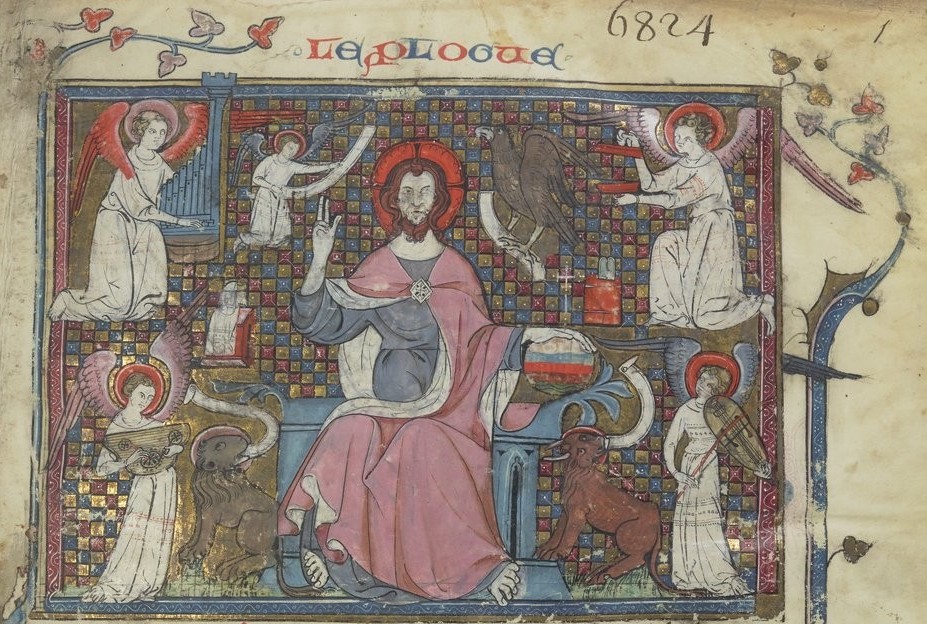 LE PLOGUE
6824
1